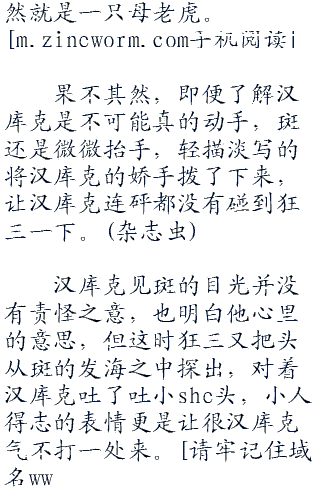 然就是一只母老虎。
[m.zincworm.com手机阅读]
果不其然，即便了解汉
库克是不可能真的动手，斑
还是微微抬手，轻描淡写的
将汉库克的娇手拨了下来，
让汉库克连砰都没有碰到狂
三一下。(杂志虫)
汉库克见斑的目光并没
有责怪之意，也明白他心里
的意思，但这时狂三又把头
从斑的发海之中探出，对着
汉库克吐了吐小shc头，小人
得志的表情更是让很汉库克
气不打一处来。[请牢记住域
名ww